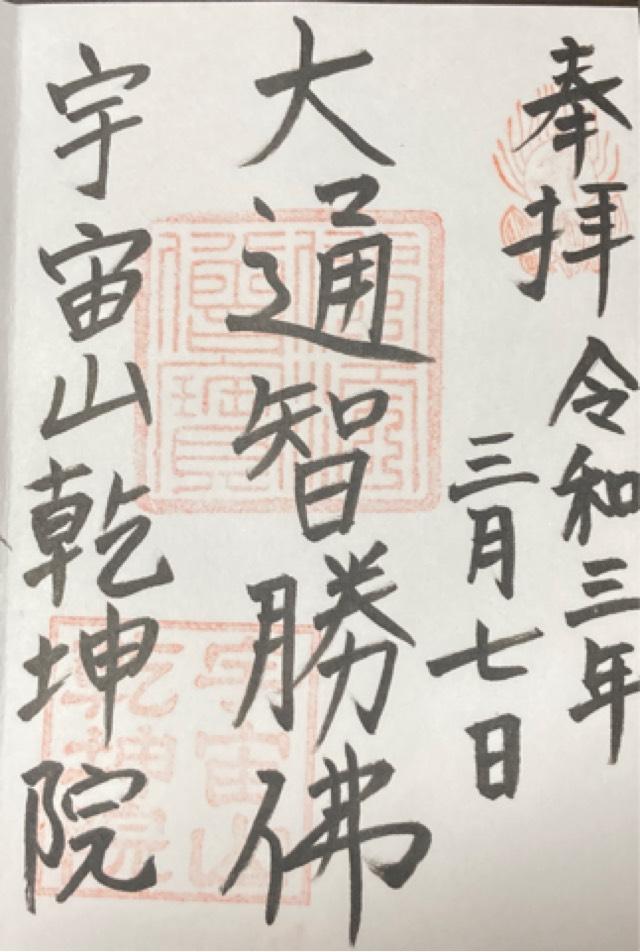 奉拝
令和三年
三月七日
大通智勝佛
宇宙山乾坤院
佛法僧寳
宇宙山
乾坤院